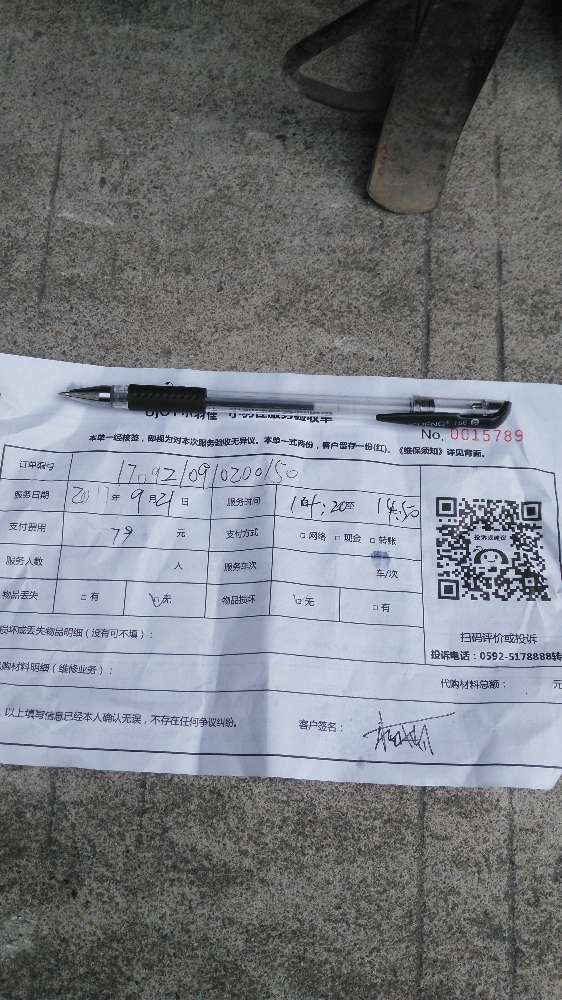 服务验收单
No. 0015789
本单一经核签，即视为对本次服务验收无异议。本单一式两份，客户留存一份(红)。《维保须知》详见背面。
订单编号 170921091020050
服务日期 2017年9月21日 服务时间 14:20至14:50
支付费用 79 元 支付方式 □网络 □现金 □转账
服务人数 人 服务车次 车/次
物品丢失 □有 □无 物品损坏 □无 □有
投诉或建议
损坏或丢失物品明细（没有可不填）：
扫码评价或投诉
投诉电话：0592-5178888转
购材料明细（维修业务）：
代购材料总额： 元
以上填写信息已经本人确认无误，不存在任何争议纠纷。
客户签名：